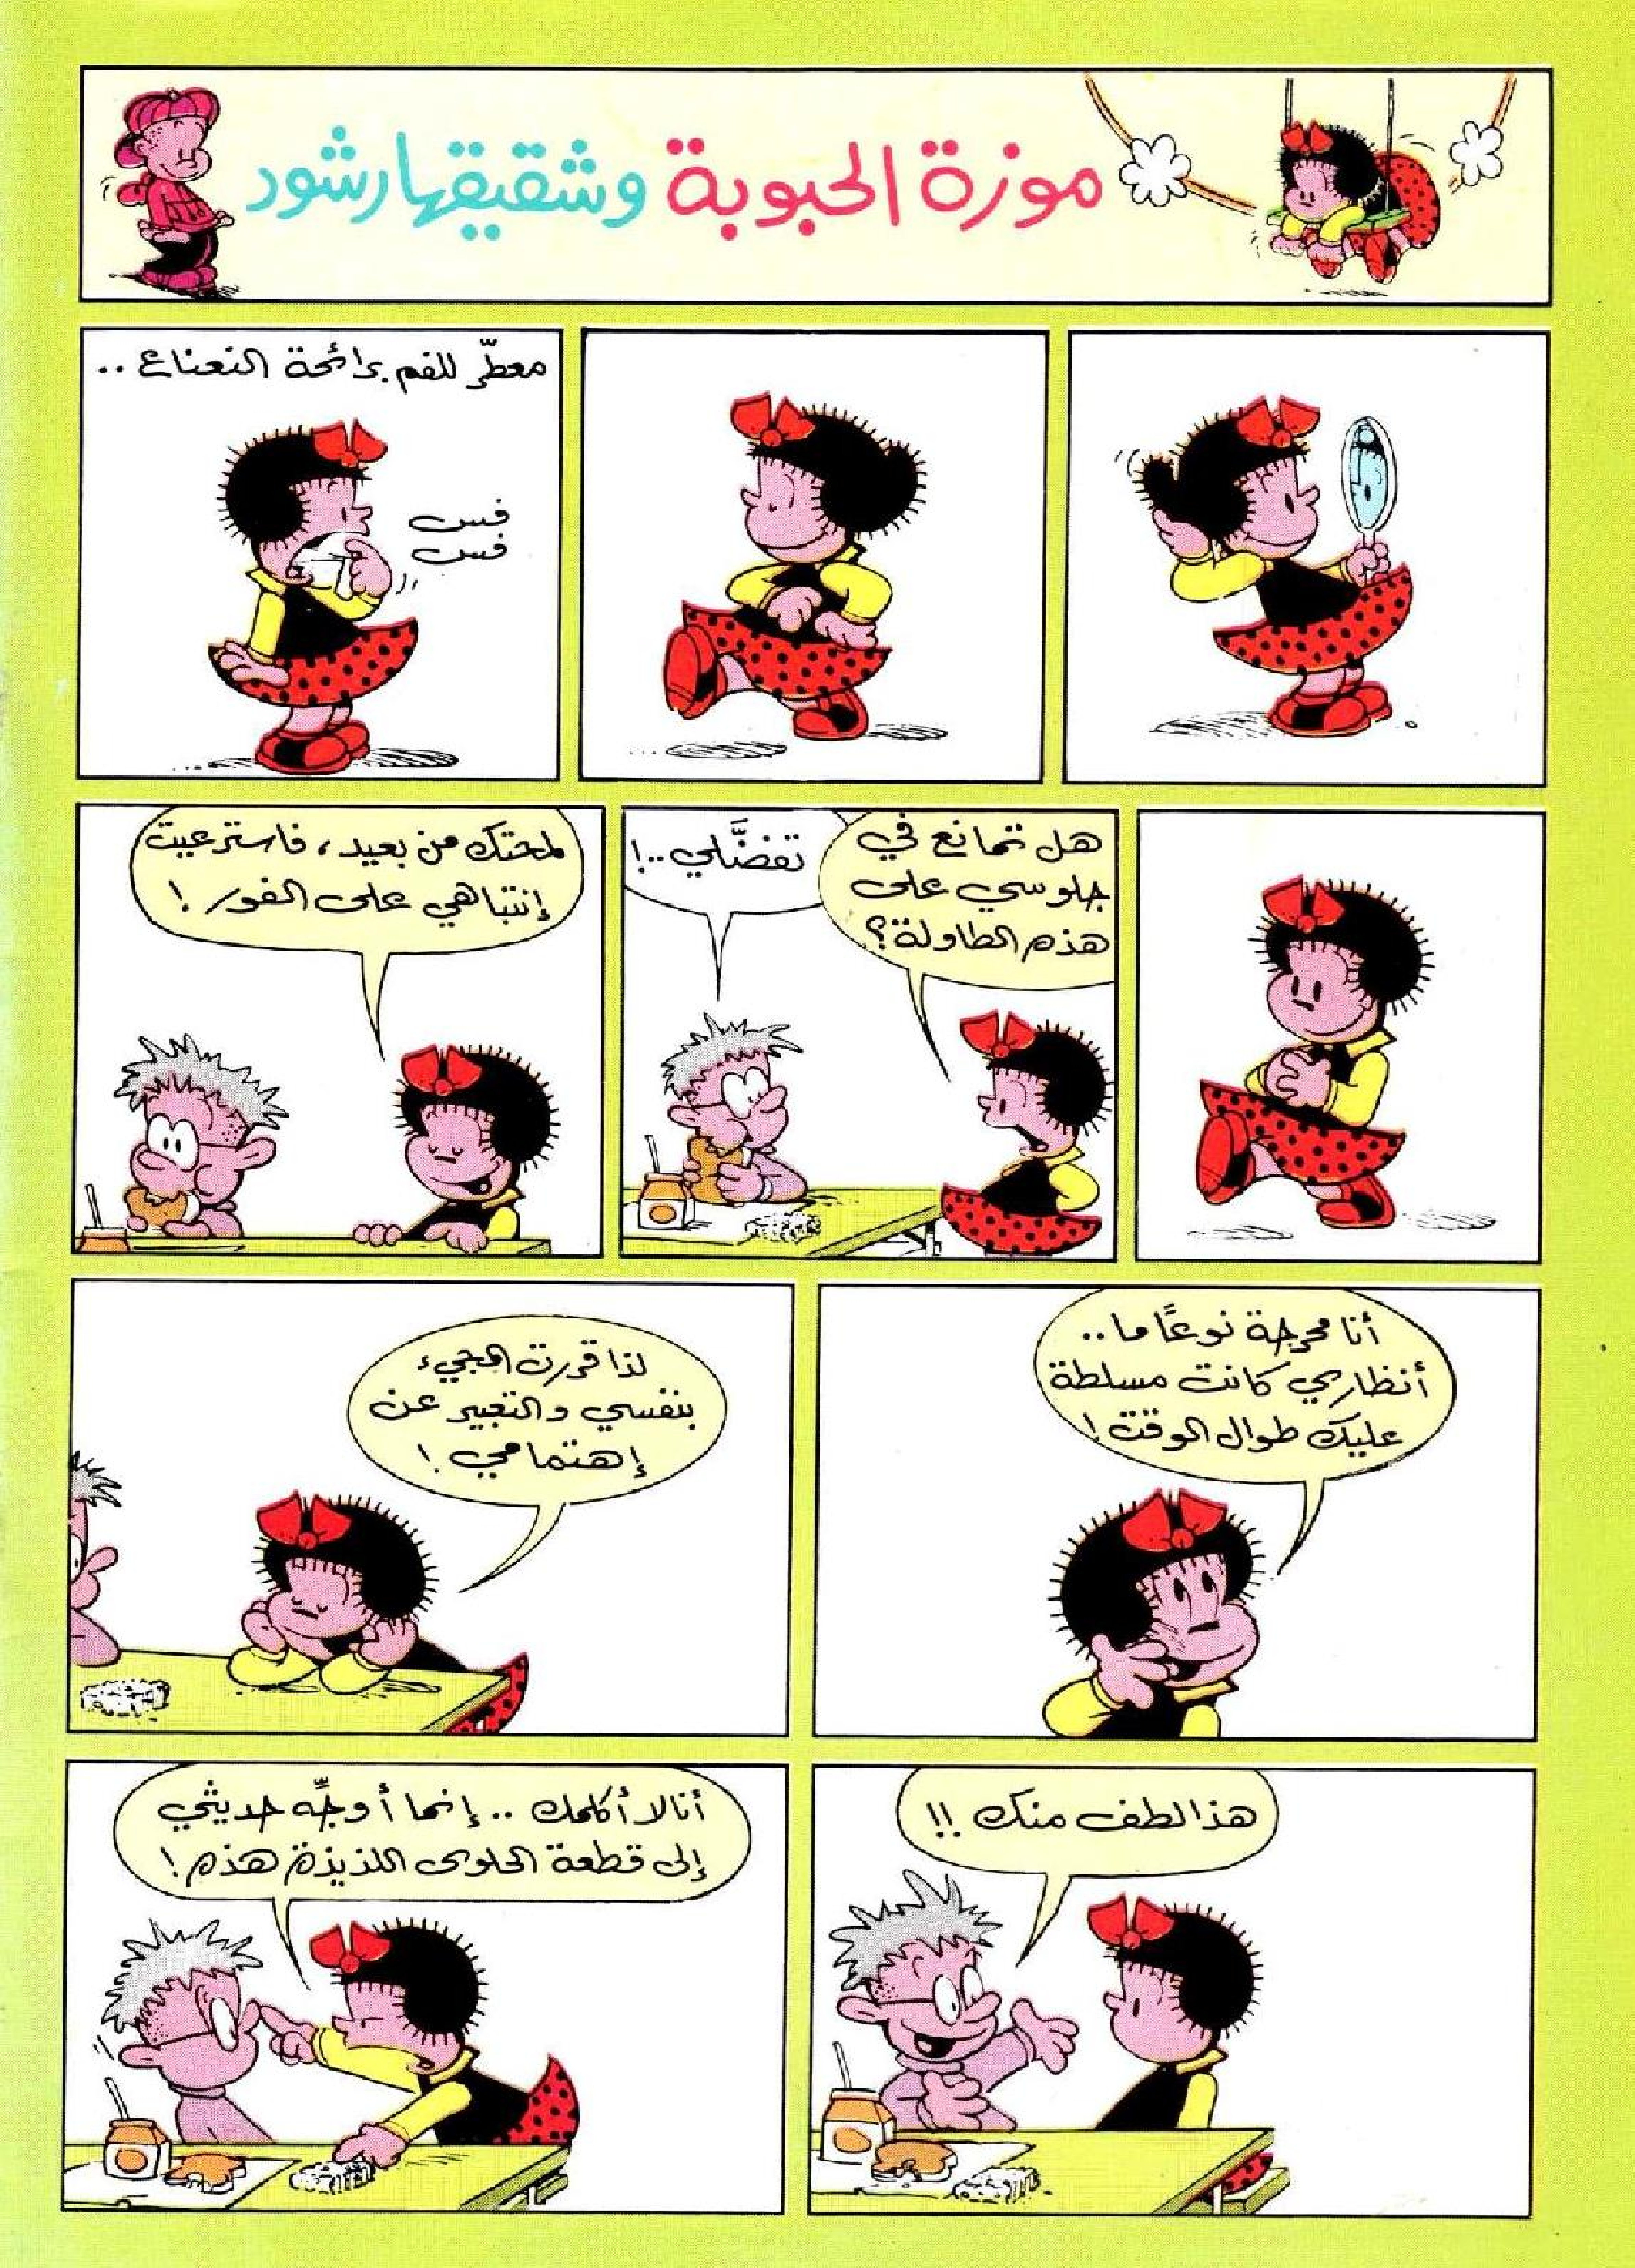 موزة الحبوبة وشقيقها رشود
معطّر للفم برائحة النعناع ..
فس
فس
هل تمانع في
جلوسي على
هذه الطاولة؟
تفضَّلي ..!
لمحتك من بعيد، فاسترعيت
إنتباهي على الفور !
أنا محرجة نوعًا ما ..
أنظاري كانت مسلطة
عليك طوال الوقت !
لذا قررت المجيء
بنفسي والتعبير عن
إهتمامي !
هذا لطف منك !!
أنا لا أكلمك .. إنما أوجِّه حديثي
إلى قطعة الحلوى اللذيذة هذه !